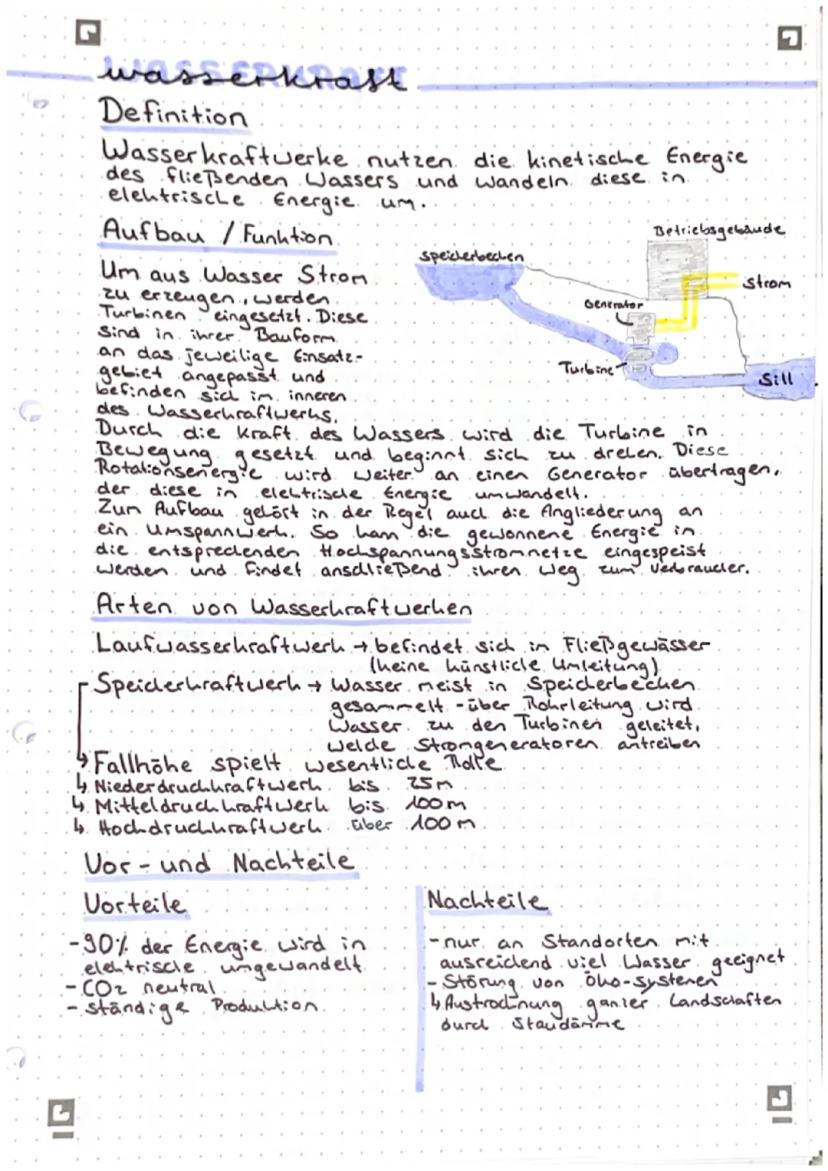 Wasserkraft
Definition
Wasserkraftwerke nutzen die kinetische Energie
des fließenden Wassers und wandeln diese in
elektrische Energie um.
Aufbau / Funktion
Um aus Wasser Strom
zu erzeugen, werden
Turbinen eingesetzt. Diese
sind in ihrer Bauform
an das jeweilige Einsatz-
gebiet angepasst und
befinden sich im inneren
des Wasserkraftwerks.
Speicherbecken
Betriebsgebäude
Strom
Generator
Turbine
Sill
Durch die Kraft des Wassers wird die Turbine in
Bewegung gesetzt und beginnt sich zu drehen. Diese
Rotationsenergie wird weiter an einen Generator übertragen,
der diese in elektrische Energie umwandelt.
Zum Aufbau gehört in der Regel auch die Angliederung an
ein Umspannwerk. So kann die gewonnene Energie in
die entsprechenden Hochspannungsstromnetze eingespeist
werden und findet anschließend ihren Weg zum Verbraucher.
Arten von Wasserkraftwerken
Laufwasserkraftwerk → befindet sich in Fließgewässer
(keine künstliche Umleitung)
Speicherkraftwerk → Wasser meist in Speicherbecken
gesammelt - über Rohrleitung wird
Wasser zu den Turbinen geleitet,
welche Stromgeneratoren antreiben
↳ Fallhöhe spielt wesentliche Rolle
↳ Niederdruckkraftwerk bis 25m
↳ Mitteldruckkraftwerk bis 100m
↳ Hochdruckkraftwerk über 100m
Vor- und Nachteile
Vorteile
- 90% der Energie wird in
elektrische umgewandelt
- CO2 neutral
- ständige Produktion
Nachteile
- nur an Standorten mit
ausreichend viel Wasser geeignet
- Störung von Öko-systemen
↳ Austrocknung ganzer Landschaften
durch Staudämme